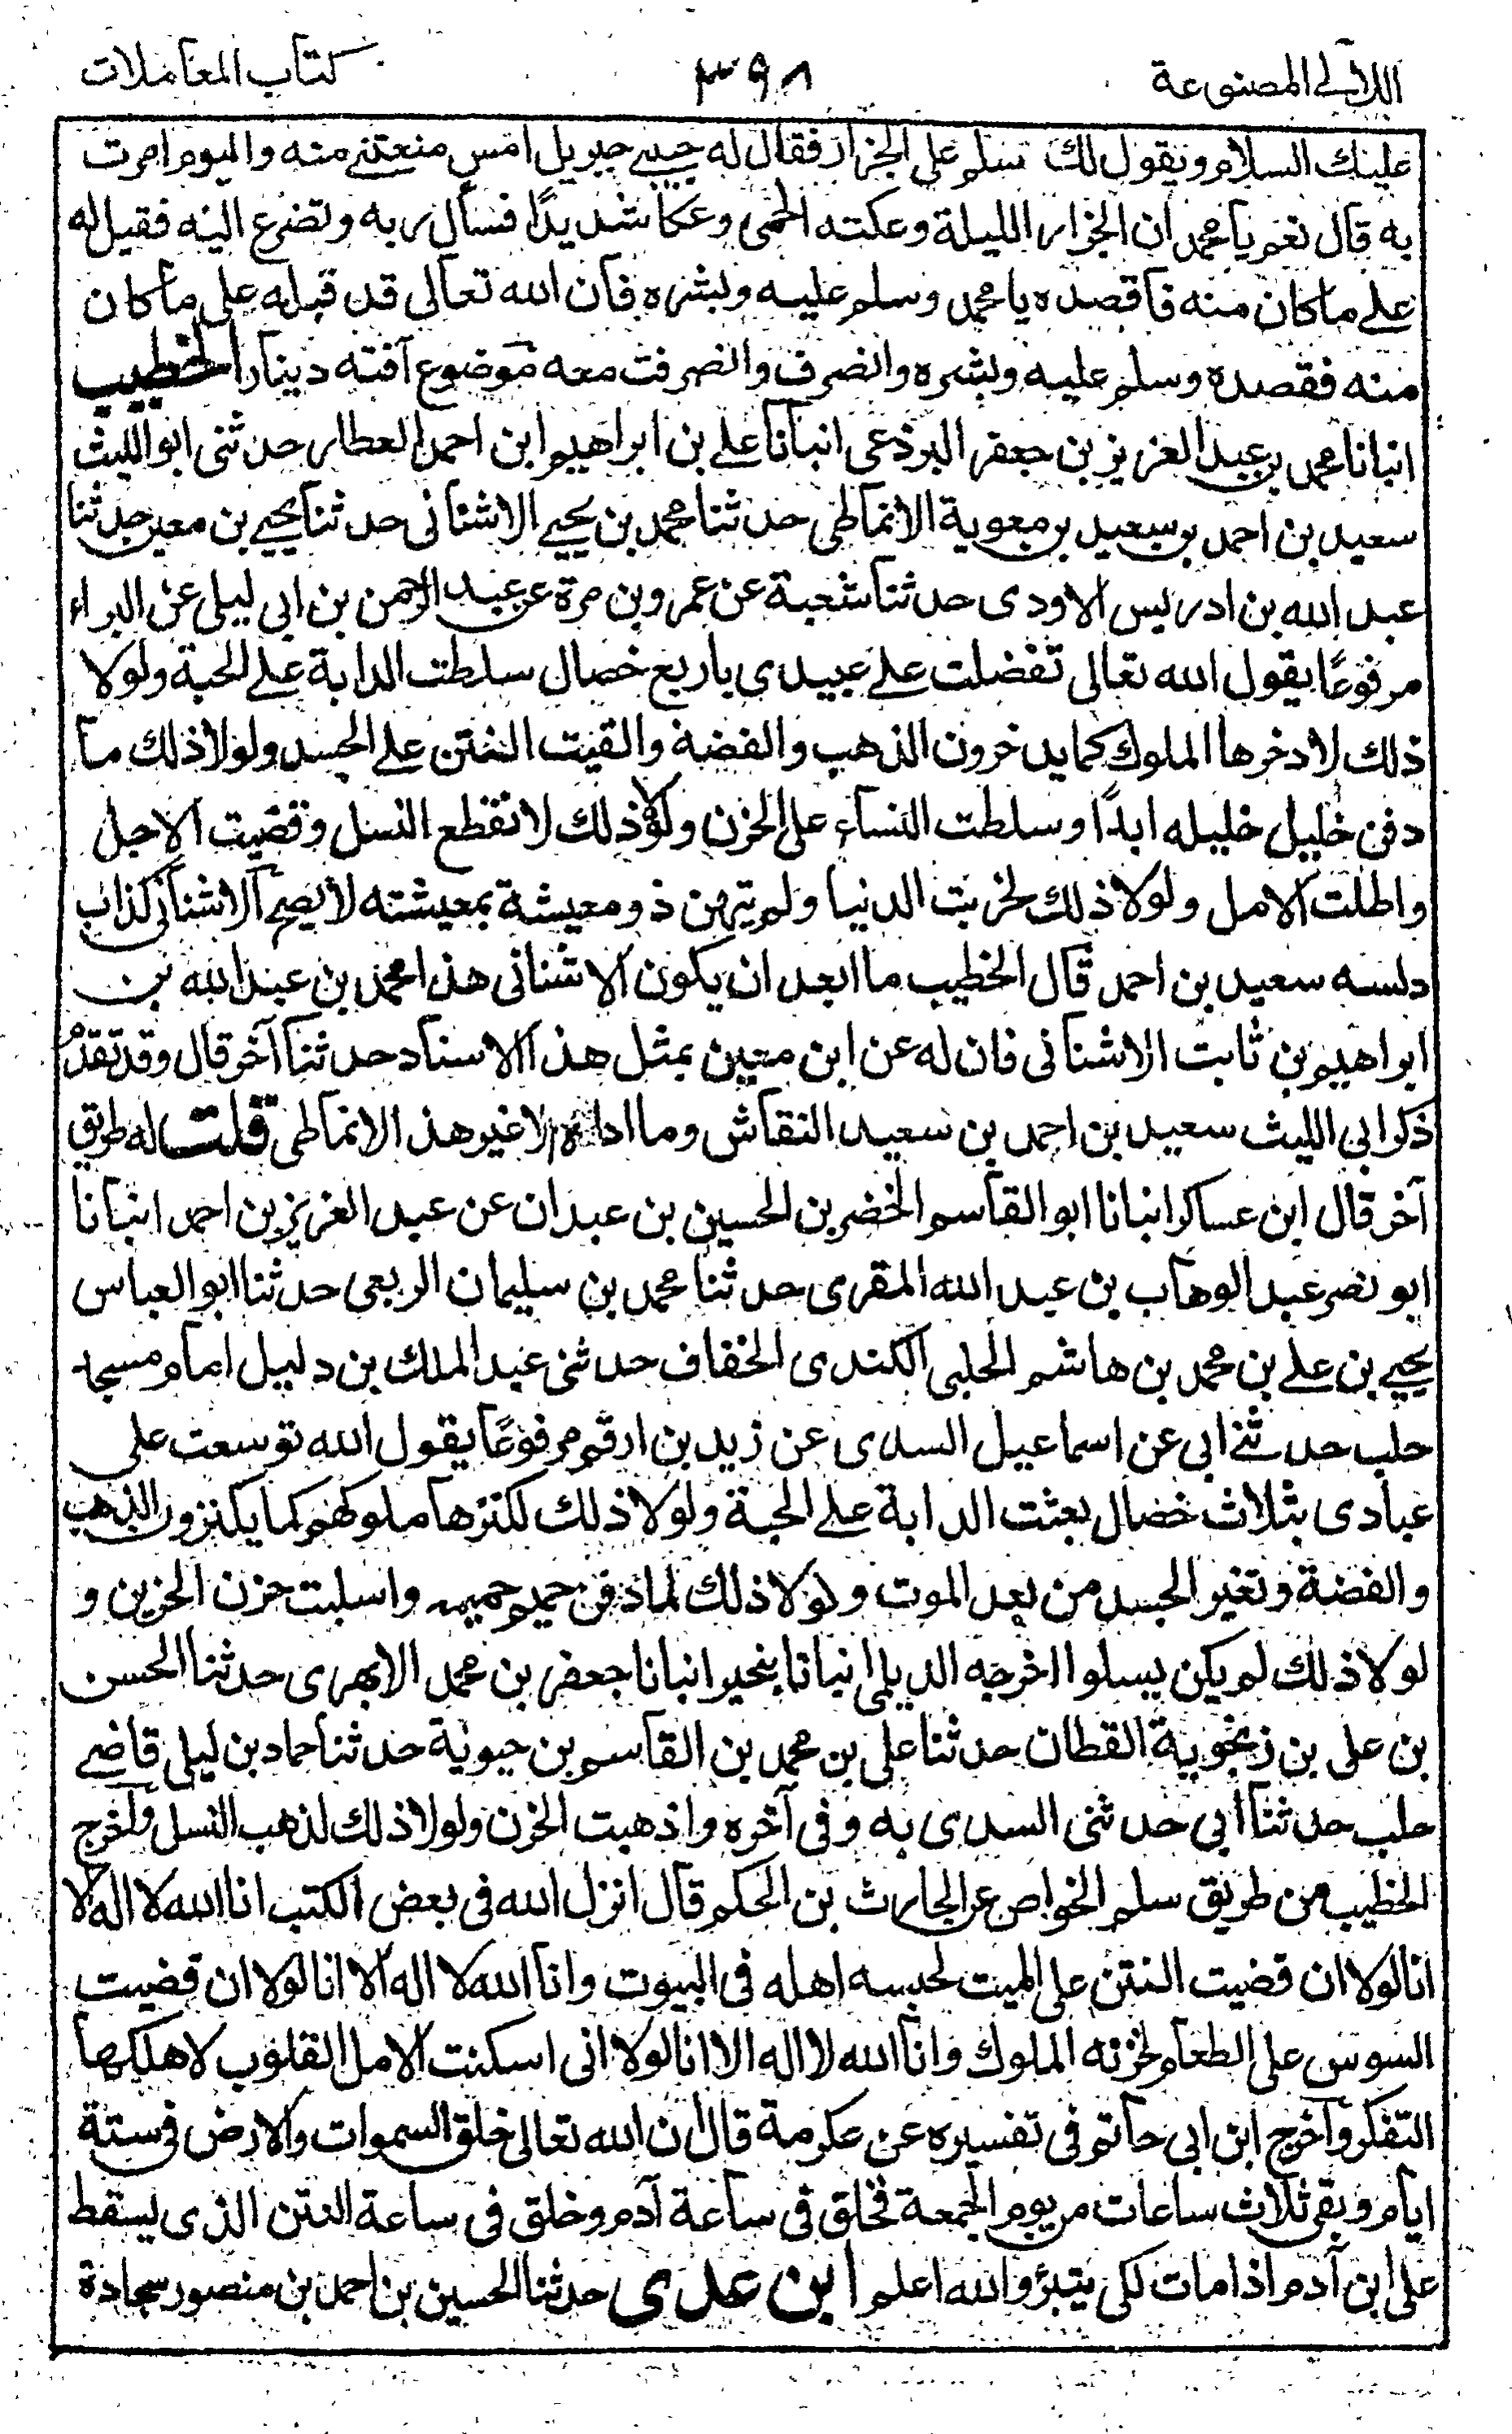 اللآلى المصنوعة
٣٩٨
كتاب المعاملات
عليك السلام ويقول لك سلم على الجزار فقال له حبيبي جبريل امس منعتني منه واليوم امرت
به قال نعم يا محمد ان الجزار الليلة وعكته الحمى وعكا شديدًا فسأل ربه وتضرع اليه فقيل له
على ما كان منه فاقصده يا محمد وسلم عليه وبشره فان الله تعالى قد قبله على ما كان
منه فقصده وسلم عليه وبشره وانصرف وانصرفت معه موضوع آفته دينار الخطيب
انبانا محمد بن عبد العزيز بن جعفر البرذعى انبانا على بن ابراهيم ابن احمد العطار حدثنى ابو الليث
سعيد بن احمد بن سعيد بن معوية الانماطى حدثنا محمد بن يحيى الاشنانى حدثنا يحيى بن معين حدثنا
عبد الله بن ادريس الاودى حدثنا شعبة عن عمرو بن مرة عن عبد الرحمن بن ابى ليلى عن البراء
مرفوعًا يقول الله تعالى تفضلت على عبيدى باربع خصال سلطت الدابة على الحبة ولولا
ذلك لادخرها الملوك كما يدخرون الذهب والفضة والقيت النتن على الجسد ولولا ذلك ما
دفن خليل خليله ابدًا وسلطت النساء على الحزن ولولا ذلك لانقطع النسل وقضيت الاجل
واطلت الامل ولولا ذلك لخربت الدنيا ولم يتهن ذو معيشة بمعيشته لا يصح الاشنانى كذاب
دلسه سعيد بن احمد قال الخطيب ما ابعد ان يكون الاشنانى هذا محمد بن عبد الله بن
ابراهيم بن ثابت الاشنانى فان له عن ابن معين بمثل هذا الاسناد حدثنا آخر قال وقد تقدم
ذكر ابى الليث سعيد بن احمد بن سعيد النقاش وما اراه الا غير هذا الانماطى قلت له طريق
آخر قال ابن عساكر انبانا ابو القاسم الخضر بن الحسين بن عبدان عن عبد العزيز بن احمد انبانا
ابو نصر عبد الوهاب بن عبد الله المقرى حدثنا محمد بن سليمان الربعى حدثنا ابو العباس
يحيى بن على بن محمد بن هاشم الحلبى الكندى الخفاف حدثنى عبد الملك بن دليل امام مسجد
حلب حدثنى ابى عن اسماعيل السدى عن زيد بن ارقم مرفوعًا يقول الله توسعت على
عبادى بثلاث خصال بعثت الدابة على الحبة ولولا ذلك لكنزها ملوكهم كما يكنزون الذهب
والفضة وتغير الجسد من بعد الموت ولولا ذلك لما دفن حميم حميمه واسلبت حزن الحزين و
لولا ذلك لم يكن يسلوا اخرجه الديلمى انبانا بنجير انبانا جعفر بن محمد الابهرى حدثنا الحسن
بن على بن زنجوية القطان حدثنا على بن محمد بن القاسم بن حيوية حدثنا حماد بن ليلى قاضى
حلب حدثنا ابى حدثنى السدى به وفى آخره واذهبت الحزن ولولا ذلك لذهب النسل واخرج
الخطيب من طريق سلم الخواص عن الحارث بن الحكم قال انزل الله فى بعض الكتب انا الله لا اله الا
انا لولا ان قضيت النتن على الميت لحبسه اهله فى البيوت وانا الله لا اله الا انا لولا ان قضيت
السوس على الطعام لخزنه الملوك وانا الله لا اله الا انا لولا انى اسكنت الامل القلوب لاهلكها
التفكر واخرج ابن ابى حاتم فى تفسيره عن عكرمة قال ان الله تعالى خلق السموات والارض فى ستة
ايام وبقى ثلاث ساعات من يوم الجمعة فخلق فى ساعة آدم وخلق فى ساعة النتن الذى يسقط
على ابن آدم اذا مات لكى يتبرؤ والله اعلم ابن عدى حدثنا الحسين بن احمد بن منصور سجادة